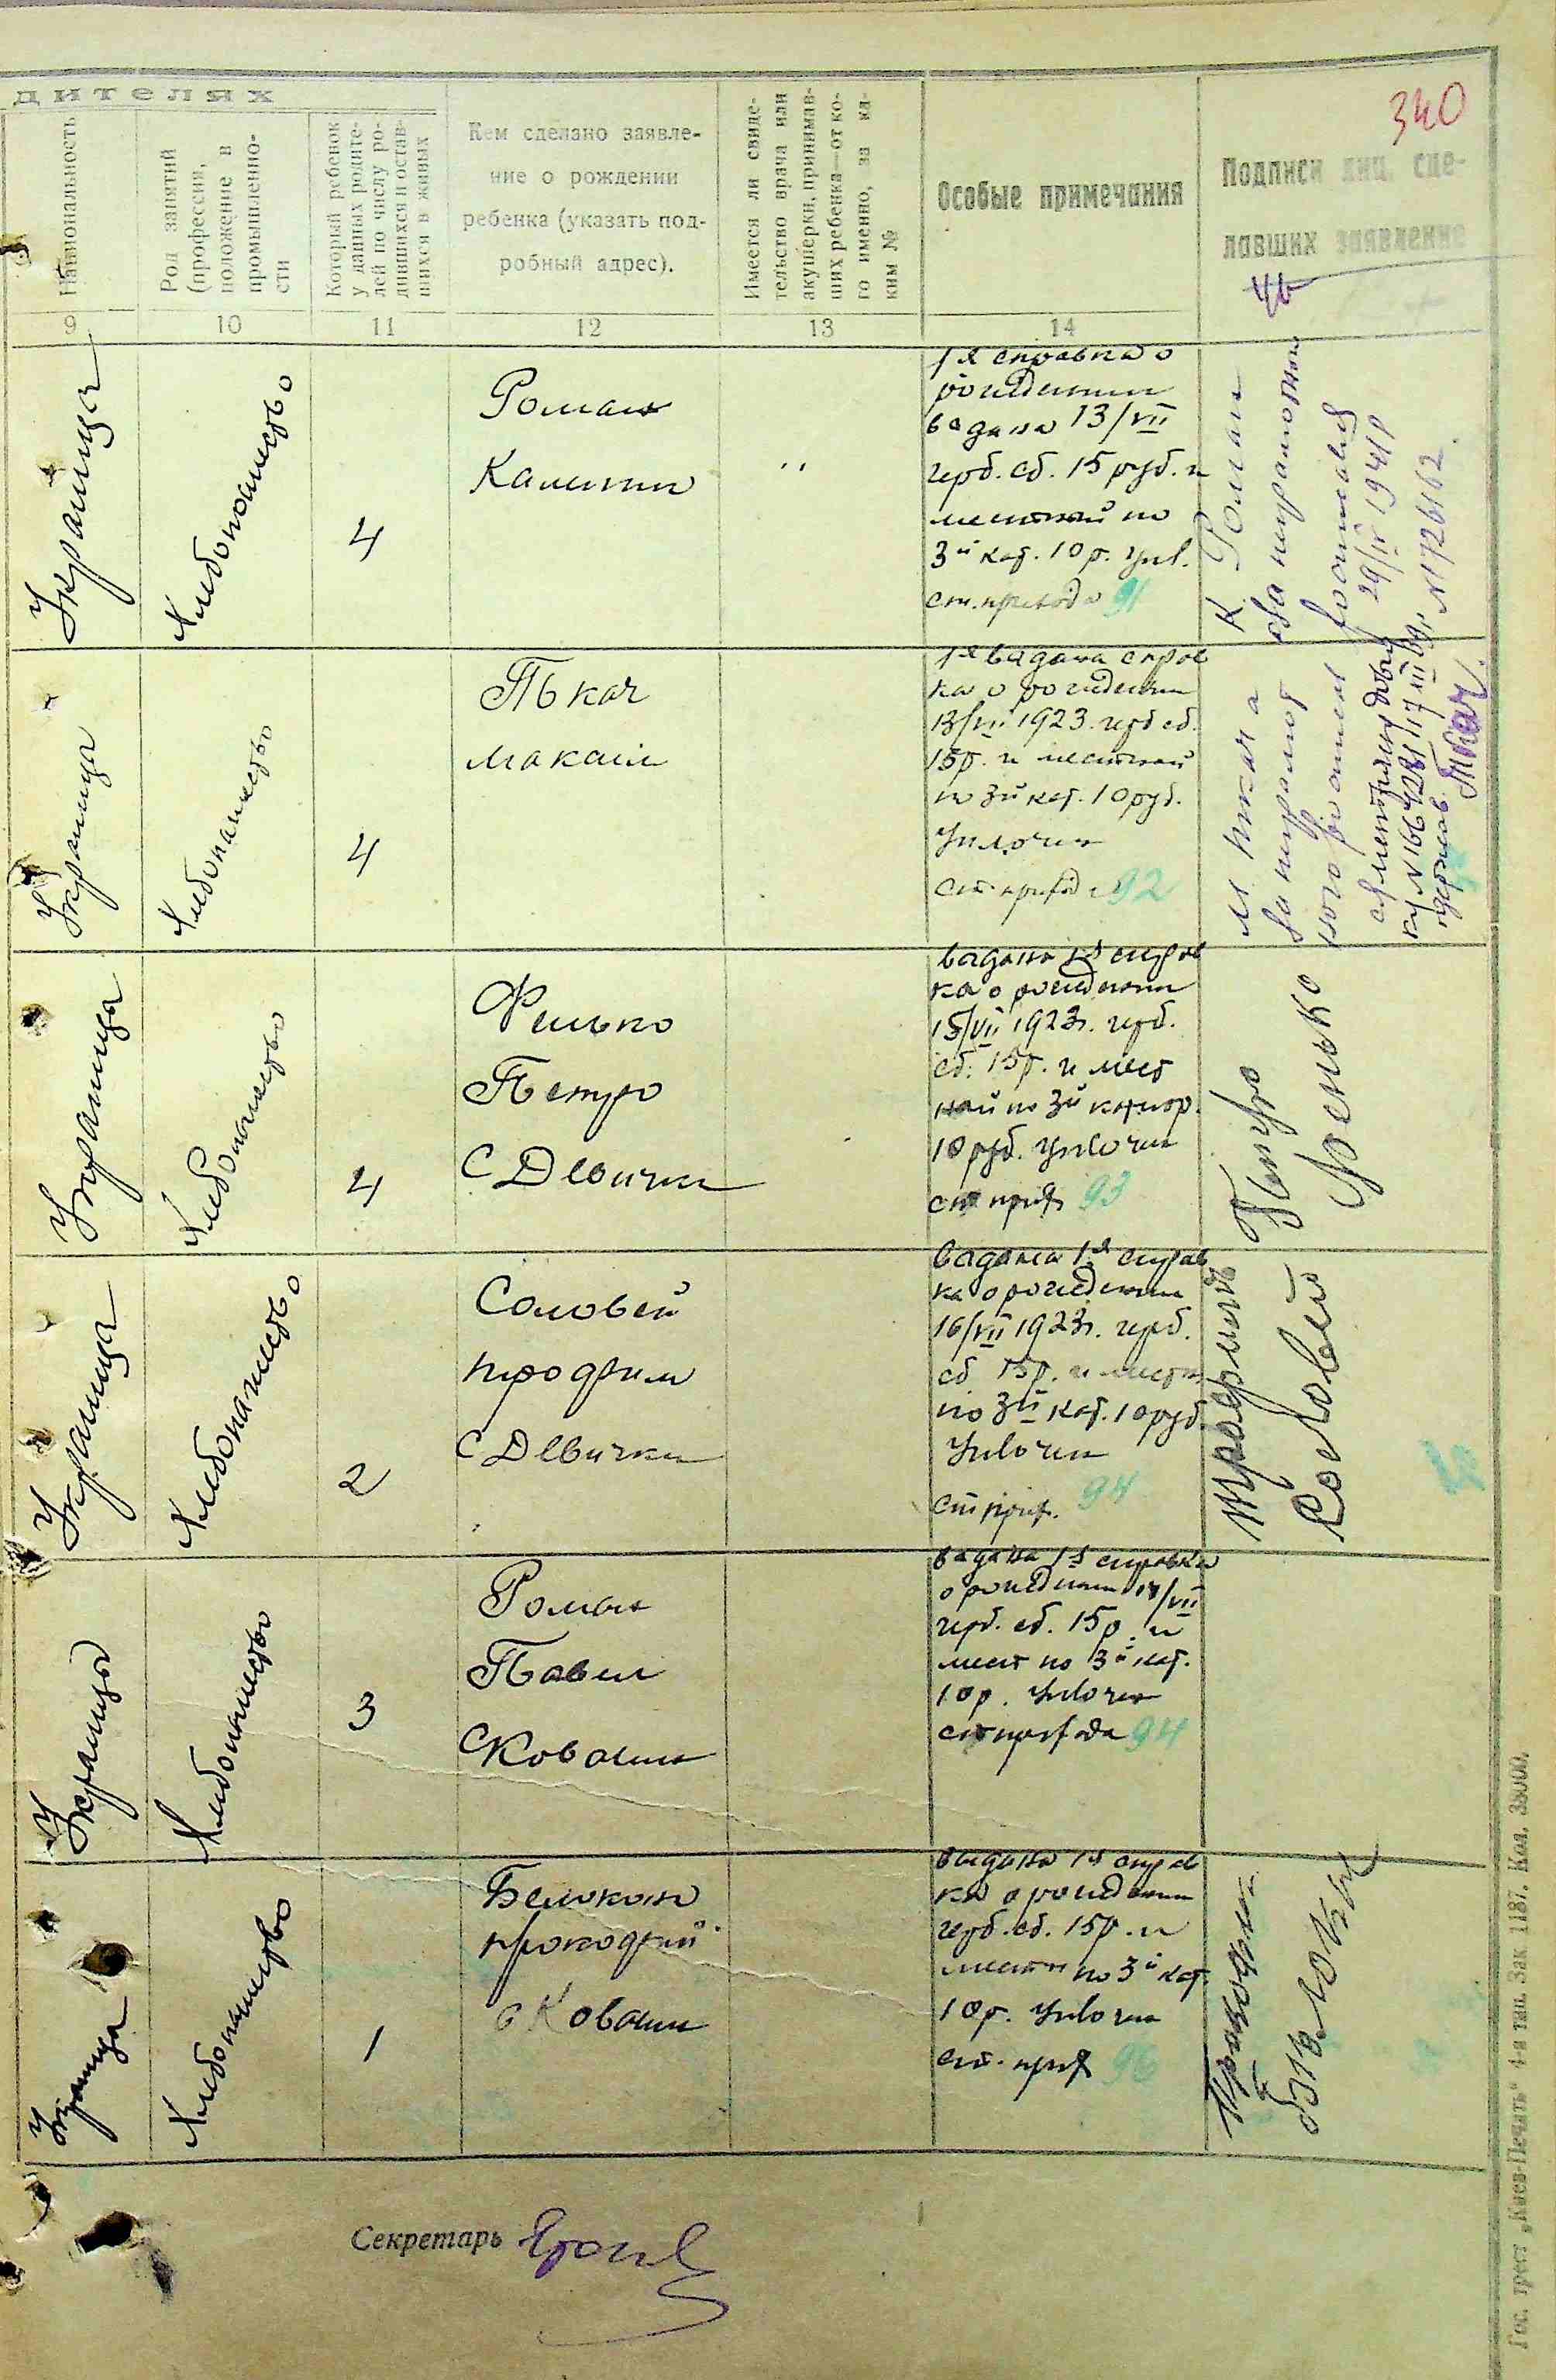 340
дителях
Национальность
Род занятий
(профессия,
положение в
промышленно-
сти
Который ребенок
у данных родите-
лей по числу ро-
дившихся и остав-
шихся в живых
Кем сделано заявле-
ние о рождении
ребенка (указать под-
робный адрес).
Имеется ли свиде-
тельство врача или
акушерки, принимав-
ших ребенка—от ко-
го именно, за ка-
ким №
Особые примечания
Подписи лиц, сде-
лавших заявление
9
10
11
12
13
14
Украинца
Хлебопашество
4
Роман
Калинин
"
1я справка о
рождении
вадана 13/VII
герб. сб. 15 руб. и
местной по
3й кат. 10 р. упл.
ст. прихода 91
К Роман
29/IV 1941р
№ 726162
Украинца
Хлебопашество
4
Ткач
Максим
1я вадана справ
ка о рождении
13/VII 1923. герб сб.
15р. и местной
по 3й кат. 10 руб.
Уплочен
ст. приход 92
М Ткача
за неграмот
ного
Ткач.
Украинца
Хлебопашество
4
Фенько
Петро
С Девички
вадана 1я справ
ка о рождении
15/VII 1923г. герб.
сб. 15р. и мест
ной по 3й катгор.
10 руб. Уплочен
ст приф 93
Петро
Фенько
Украинца
Хлебопашество
2
Соловей
трофим
С Девички
вадана 1я справ
ка о рождении
16/VII 1923г. герб.
сб 15р. и местн
по 3й кат. 10 руб.
Уплочен
ст приф. 94
Трофим
Соловей
Украинца
Хлебопашество
3
Роман
Павел
С Ковалин
вадана 1я справка
о рождении 17/VII
герб. сб. 15р. и
мест по 3й кат.
10р. Уплочен
ст прихода 94
Украинца
Хлебопашество
1
Белокон
прокофий
с Ковалин
выдана 1я справ
ка о рождении
герб. сб. 15р. и
местн по 3й кат.
10р. Уплочен
ст. приф 96
Прокофий
Билоконь
Секретарь
Гос. трест „Киев-Печать" 4-я тип. Зак. 1187. Кол. 38000.